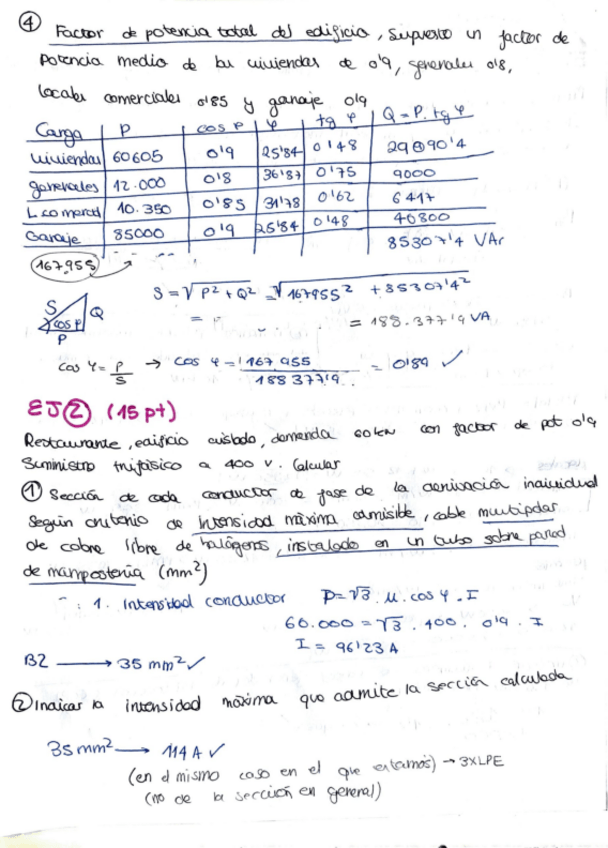 ④ Factor de potencia total del edificio, supuesto un factor de
potencia media de las viviendas de 0'9, generales 0'8,
locales comerciales 0'85 y garaje 0'9
Carga P cos φ φ tg φ Q = P. tg φ
viviendas 60605 0'9 25'84 0'48 29090'4
generales 12.000 0'8 36'87 0'75 9000
L comercial 10.350 0'85 31'78 0'62 6417
Garaje 85000 0'9 25'84 0'48 40800
167.955 85307'4 VAr
S = √P² + Q² = √167955² + 85307'4²
= = 188.377'9 VA
S Q cos φ P
cos φ = P/S → cos φ = 167 955 / 188 377'9 = 0'89 ✓
EJ② (15 pt)
Restaurante, edificio aislado, demanda 60 kW con factor de pot 0'9
Suministro trifásico a 400 V. Calcular
① Sección de cada conductor de fase de la derivación individual
según criterio de intensidad máxima admisible, cable multipolar
de cobre libre de halógenos, instalado en un tubo sobre pared
de mampostería (mm²)
1. Intensidad conductor P = √3 . U . cos φ . I
60.000 = √3 . 400 . 0'9 . I
I = 96'23 A
B2 → 35 mm² ✓
② Indicar la intensidad máxima que admite la sección calculada
35 mm² → 114 A ✓
(en el mismo caso en el que estamos) → 3XLPE
(no de la sección en general)